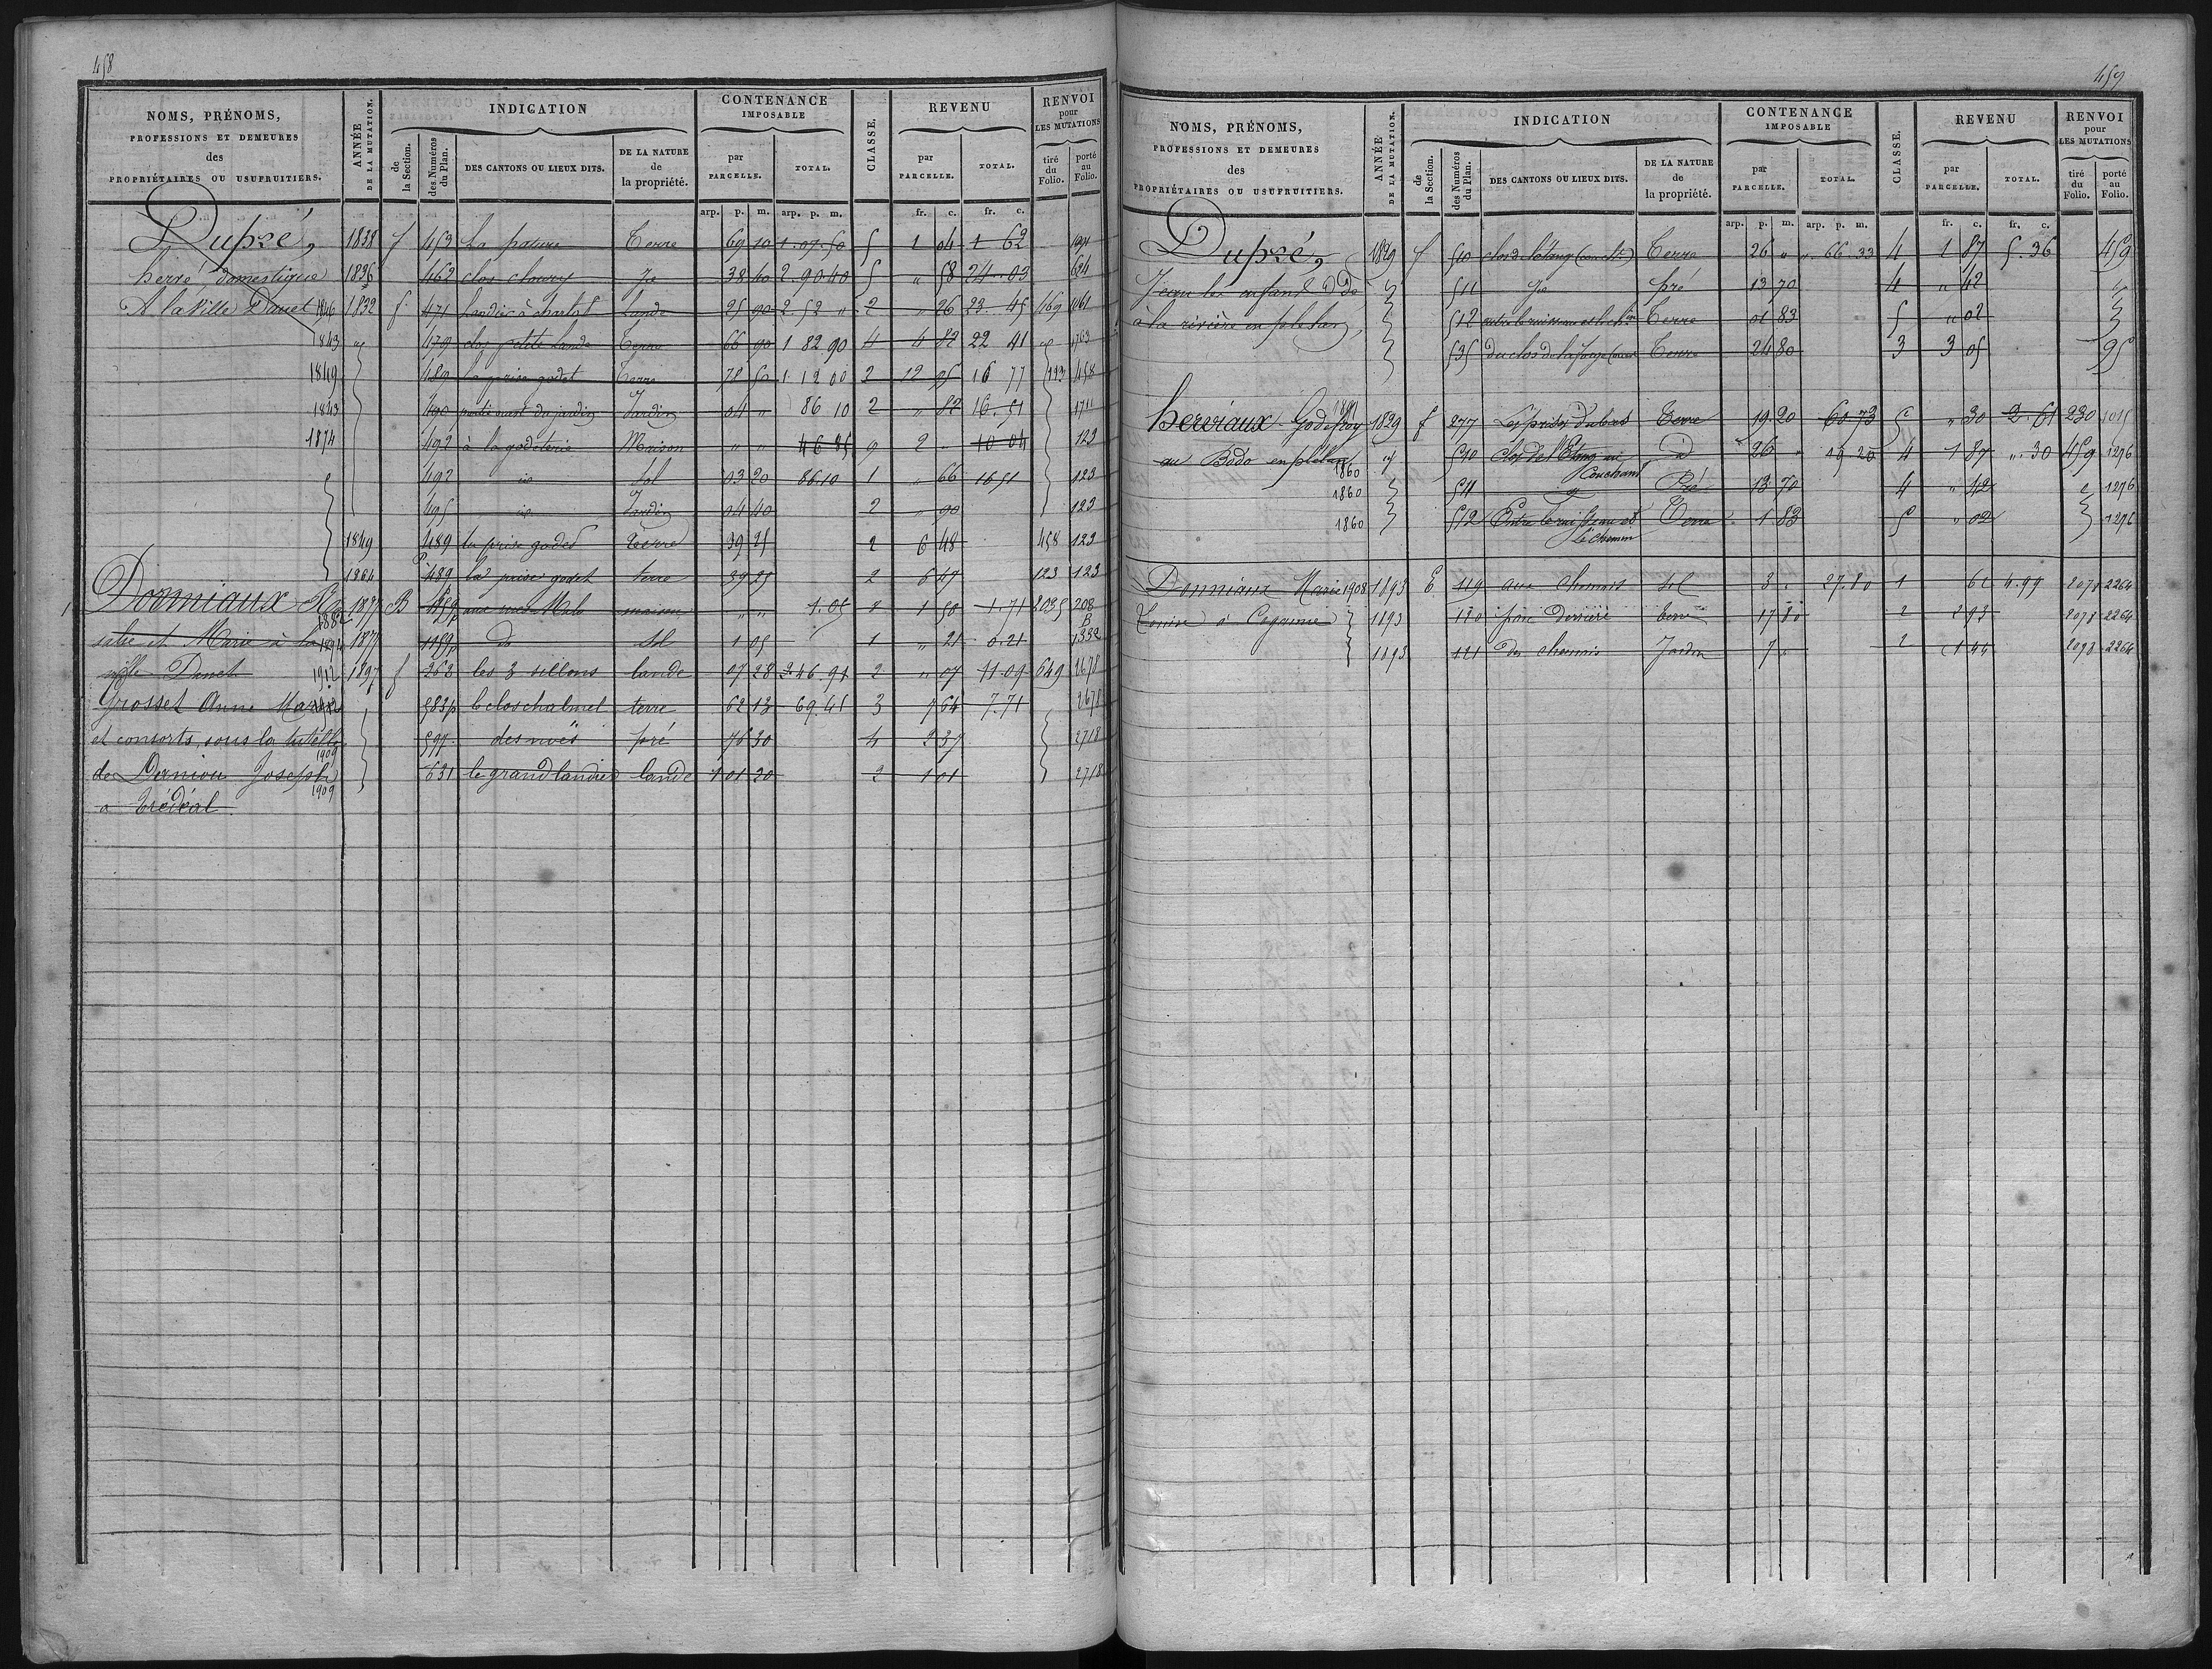 458
NOMS, PRÉNOMS,
PROFESSIONS ET DEMEURES
des
PROPRIÉTAIRES OU USUFRUITIERS.
ANNÉE
DE LA MUTATION.
INDICATION
de
la Section.
des Numéros
du Plan.
DES CANTONS OU LIEUX DITS.
DE LA NATURE
de
la propriété.
CONTENANCE
IMPOSABLE
par
PARCELLE.
TOTAL.
CLASSE.
REVENU
par
PARCELLE.
TOTAL.
RENVOI
pour
LES MUTATIONS
tiré
du
Folio.
porté
au
Folio.
arp. p. m. arp. p. m. fr. c. fr. c.
Dupré, 1828 f 453 La pature Terre 69 10 1.07.50 5 1 04 1 62
herré, domestique 1836 462 clos 38 40 2.90.40 5 " 58 24.03 634
A la Ville Danet 1846 1832 f. 471 Landier à charlot Lande 25 90 2 52 " 2 " 26 23.45 169 1061
1843 479 clos petite Lande Terre 66 90 1 82 90 4 4 82 22 41 1763
1849 489 La prise godet Terre 78 50 1.12 00 2 12 95 16 77 193 458
1843 490 du jardin Jardin 04 " 86 10 2 " 82 16.51 1711
1874 492 à la godeterie Maison " " 46 85 9 2 " 10 04 123
492 id Sol 03 20 86.10 1 " 66 16 51 123
495 id Jardin 04 40 2 " 90 123
1849 489 la prise godet terre 39 25 2 6 48 458 123
1864 489 la prise godet terre 39 25 2 6 47 123 123
Dormiaux 1877 B 1159p maison " " 1.05 8 1 50 1.71 2035 208
1882
et Marie à la 1894 1877 1159p do Sol 1 05 1 " 21 0.21 1332
ville Danet 1912 1897 f 262 les 3 sillons lande 07 28 2.46.91 2 " 07 11.09 649 2678
Grosset Anne Marie 583p le clos chalmel terre 62 13 69.41 3 7 64 7.71 2678
et consorts, sous la tutelle 597 des noës pré 76 30 4 2 37 2718
1909
de Derniou Joseph 631 le grand landier lande 1 01 20 2 1 01 2718
1909
a Trédéal.
459
NOMS, PRÉNOMS,
PROFESSIONS ET DEMEURES
des
PROPRIÉTAIRES OU USUFRUITIERS.
ANNÉE
DE LA MUTATION.
INDICATION
de
la Section.
des Numéros
du Plan.
DES CANTONS OU LIEUX DITS.
DE LA NATURE
de
la propriété.
CONTENANCE
IMPOSABLE
par
PARCELLE.
TOTAL.
CLASSE.
REVENU
par
PARCELLE.
TOTAL.
RENVOI
pour
LES MUTATIONS
tiré
du
Folio.
porté
au
Folio.
arp. p. m. arp. p. m. fr. c. fr. c.
Dupré, 1829 f 510 Terre 26 " " 66.33 4 1 87 5.36 459
les enfants 511 pré 13 70 4 " 42
à la rivière en plelan, 512 Terre 01 83 5 " 02
535 du clos de la Terre 24 80 3 3 05 95
1871
Hereriaux Godefroy 1829 f 277 Les prises Terre 19.20 60.73 5 " 30 2.61 230 1015
au Bodo en plélan 1860 510 Clos de l'Etang au 26 " 19.20 4 1 87 ". 30 459 1276
Couchant
1860 511 Pré 13 70 4 " 42 1276
1860 512 Entre le ruisseau et Terre 1 83 5 " 02 1276
le chemin
Dormiaux Marie 1908 1893 E 119 aux chesnais Sol 3 " 27.80 1 62 4.99 2078 2264
à 1893 120 parc derrière terre 17 80 2 2 93 2078 2264
1893 121 des chesnais Jardin 7 " 2 1 44 2078 2264